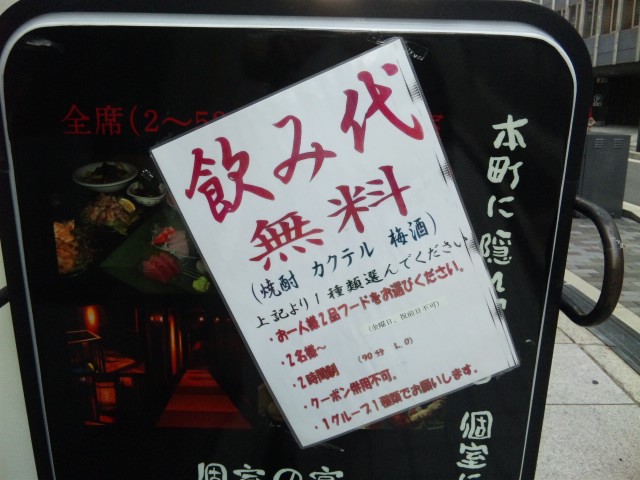 全席(2~
飲み代
無料
(焼酎 カクテル 梅酒)
上記より1種類選んでください
・お一人様2品フードをお選びください。
・2名様~ (金曜日、祝前日不可)
・2時間制 (90分 L.O)
・クーポン併用不可。
・1グループ1種類でお願いします。
本町に隠れ
個室
個室の宴